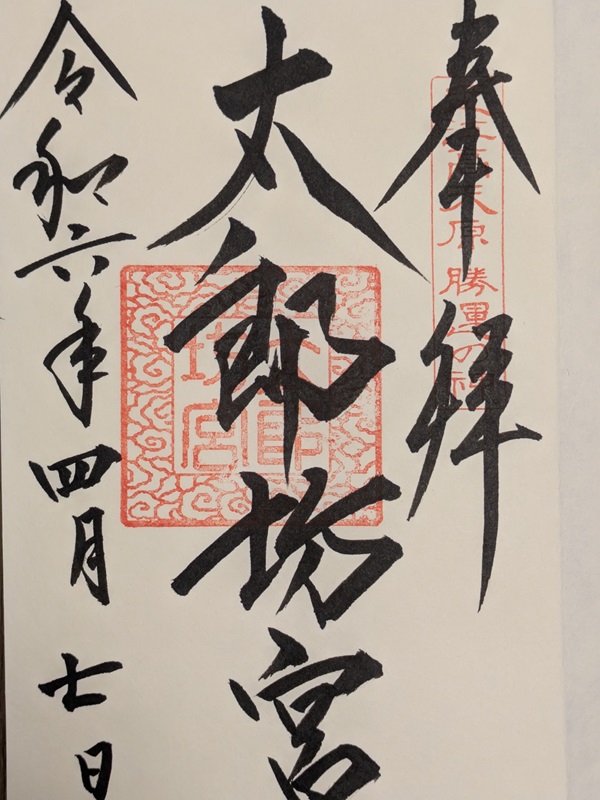 奉拝
近江高天原 勝運の神
太郎坊宮
太郎坊宮
令和六年四月七日